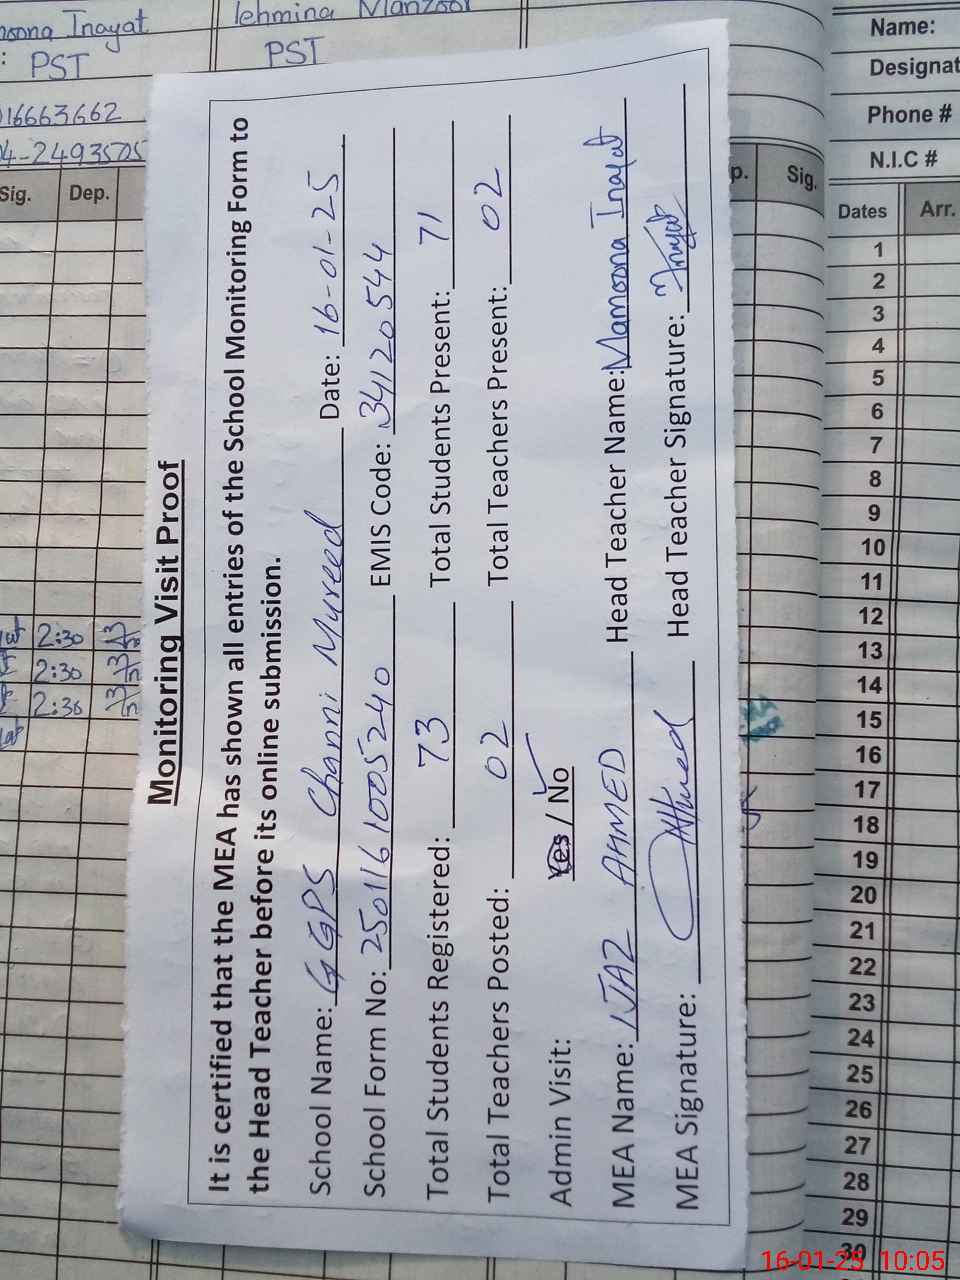 Monitoring Visit Proof
It is certified that the MEA has shown all entries of the School Monitoring Form to
the Head Teacher before its online submission.
School Name: GGPS Channi Mureed Date: 16-01-25
School Form No: 2501161005240 EMIS Code: 34120544
Total Students Registered: 73 Total Students Present: 71
Total Teachers Posted: 02 Total Teachers Present: 02
Admin Visit: Yes / No
MEA Name: IJAZ AHMED Head Teacher Name: Mamoona Inayat
MEA Signature: Ahmed Head Teacher Signature: Inayat
Inayat
Tehmina Manzoor
PST
PST
016663662
04-2493505
Sig. Dep.
2:30
2:30
2:30
p. Sig.
Name:
Designat
Phone #
N.I.C #
Dates Arr.
1
2
3
4
5
6
7
8
9
10
11
12
13
14
15
16
17
18
19
20
21
22
23
24
25
26
27
28
29
30
16-01-25 10:05